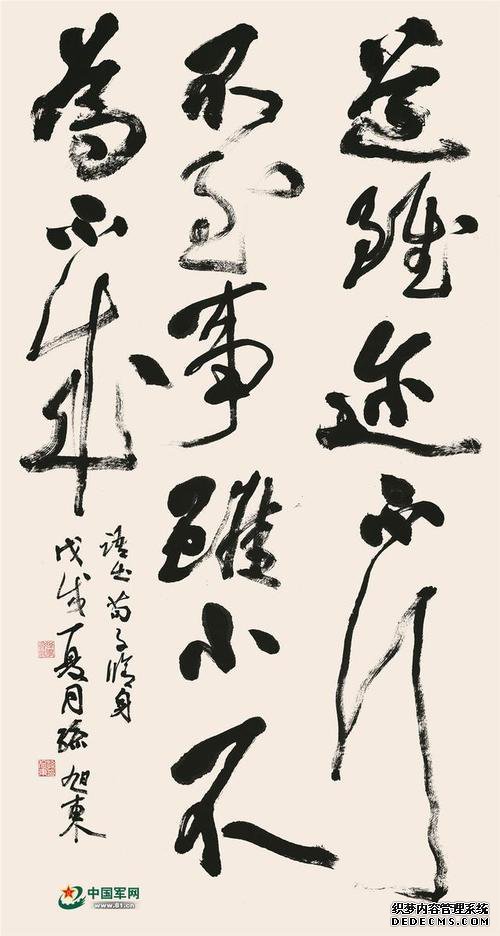 道雖迩不行
不至事雖小不
為不成
語出荀子修身
戊戌夏月孫旭東
中国军网
www.81.cn
织梦内容管理系统
DEDECMS.COM